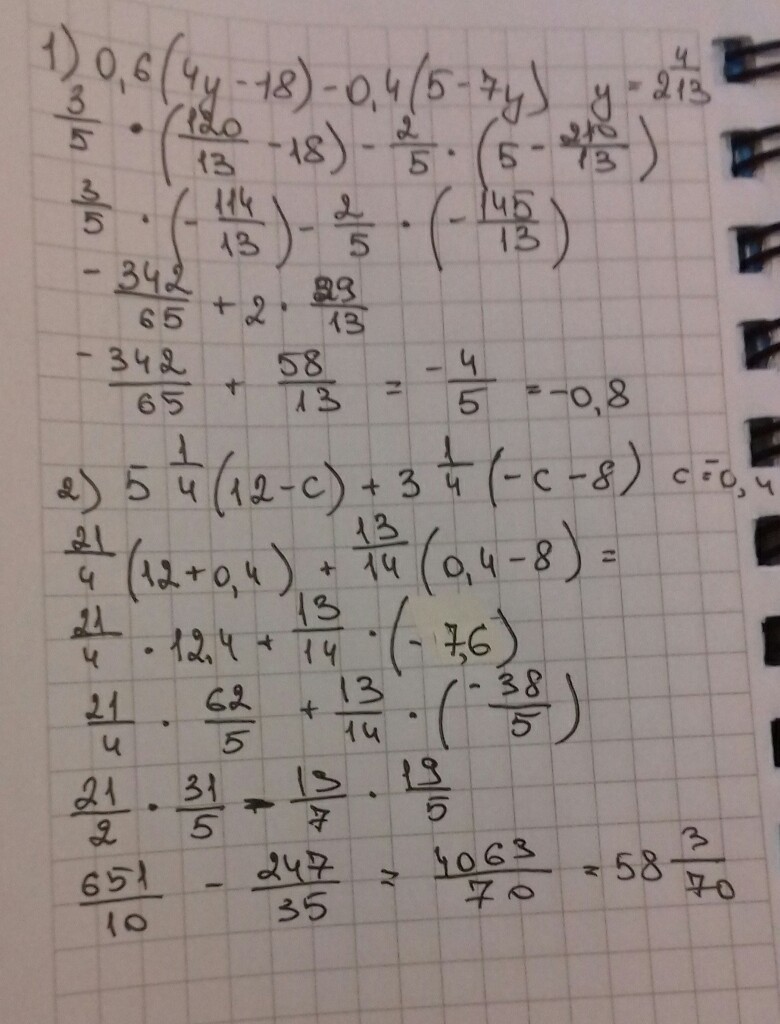 1) 0,6(4y-18)-0,4(5-7y) y=2 4/13
3/5 · (120/13 -18) - 2/5 · (5 - 210/13)
3/5 · (-114/13) - 2/5 · (-145/13)
-342/65 + 2 · 29/13
-342/65 + 58/13 = -4/5 = -0,8
2) 5 1/4 (12-c) + 3 1/4 (-c-8) c=-0,4
21/4 (12+0,4) + 13/14 (0,4-8) =
21/4 · 12,4 + 13/14 · (-7,6)
21/4 · 62/5 + 13/14 · (-38/5)
21/2 · 31/5 - 13/7 · 19/5
651/10 - 247/35 = 4063/70 = 58 3/70